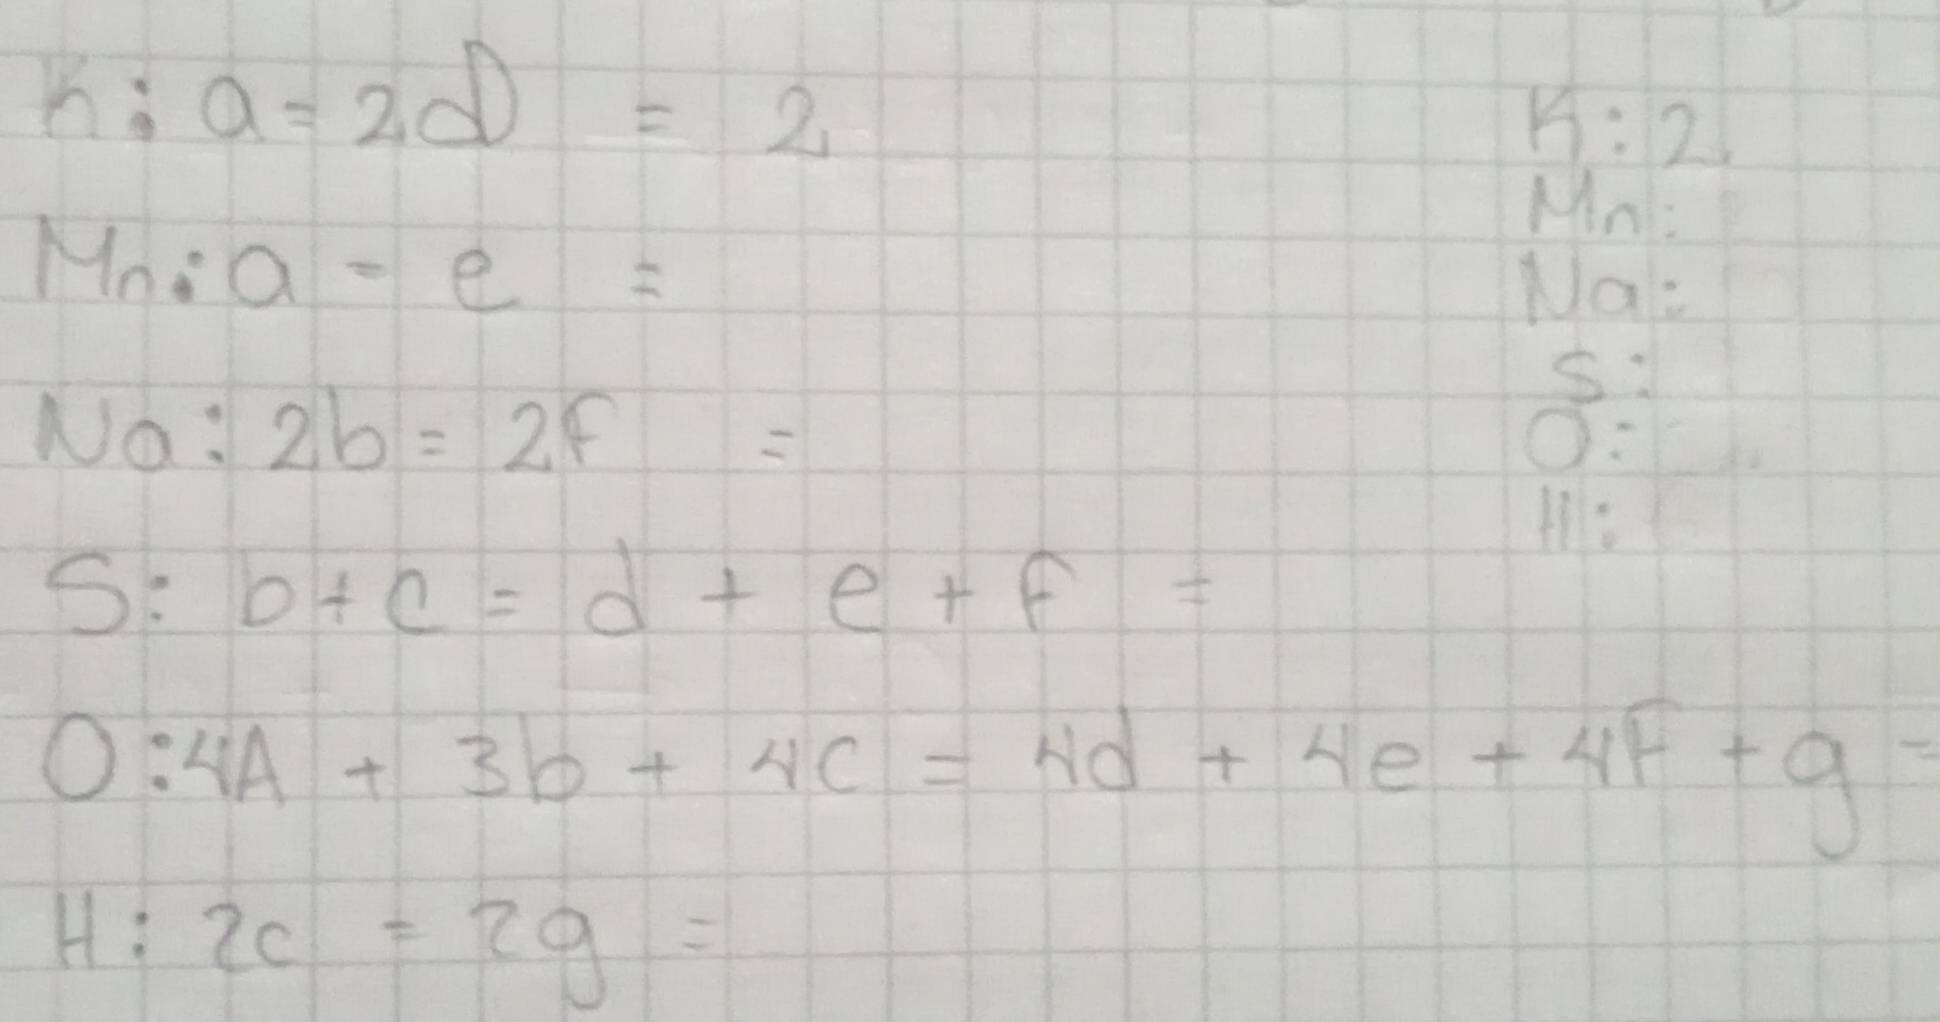 K: a = 2d = 2
Mn: a - e =
Na: 2b = 2f =
S: b + c = d + e + f =
O: 4A + 3b + 4c = 4d + 4e + 4f + g =
H: 2c = 2g =
K: 2
Mn:
Na:
S:
O:
H: